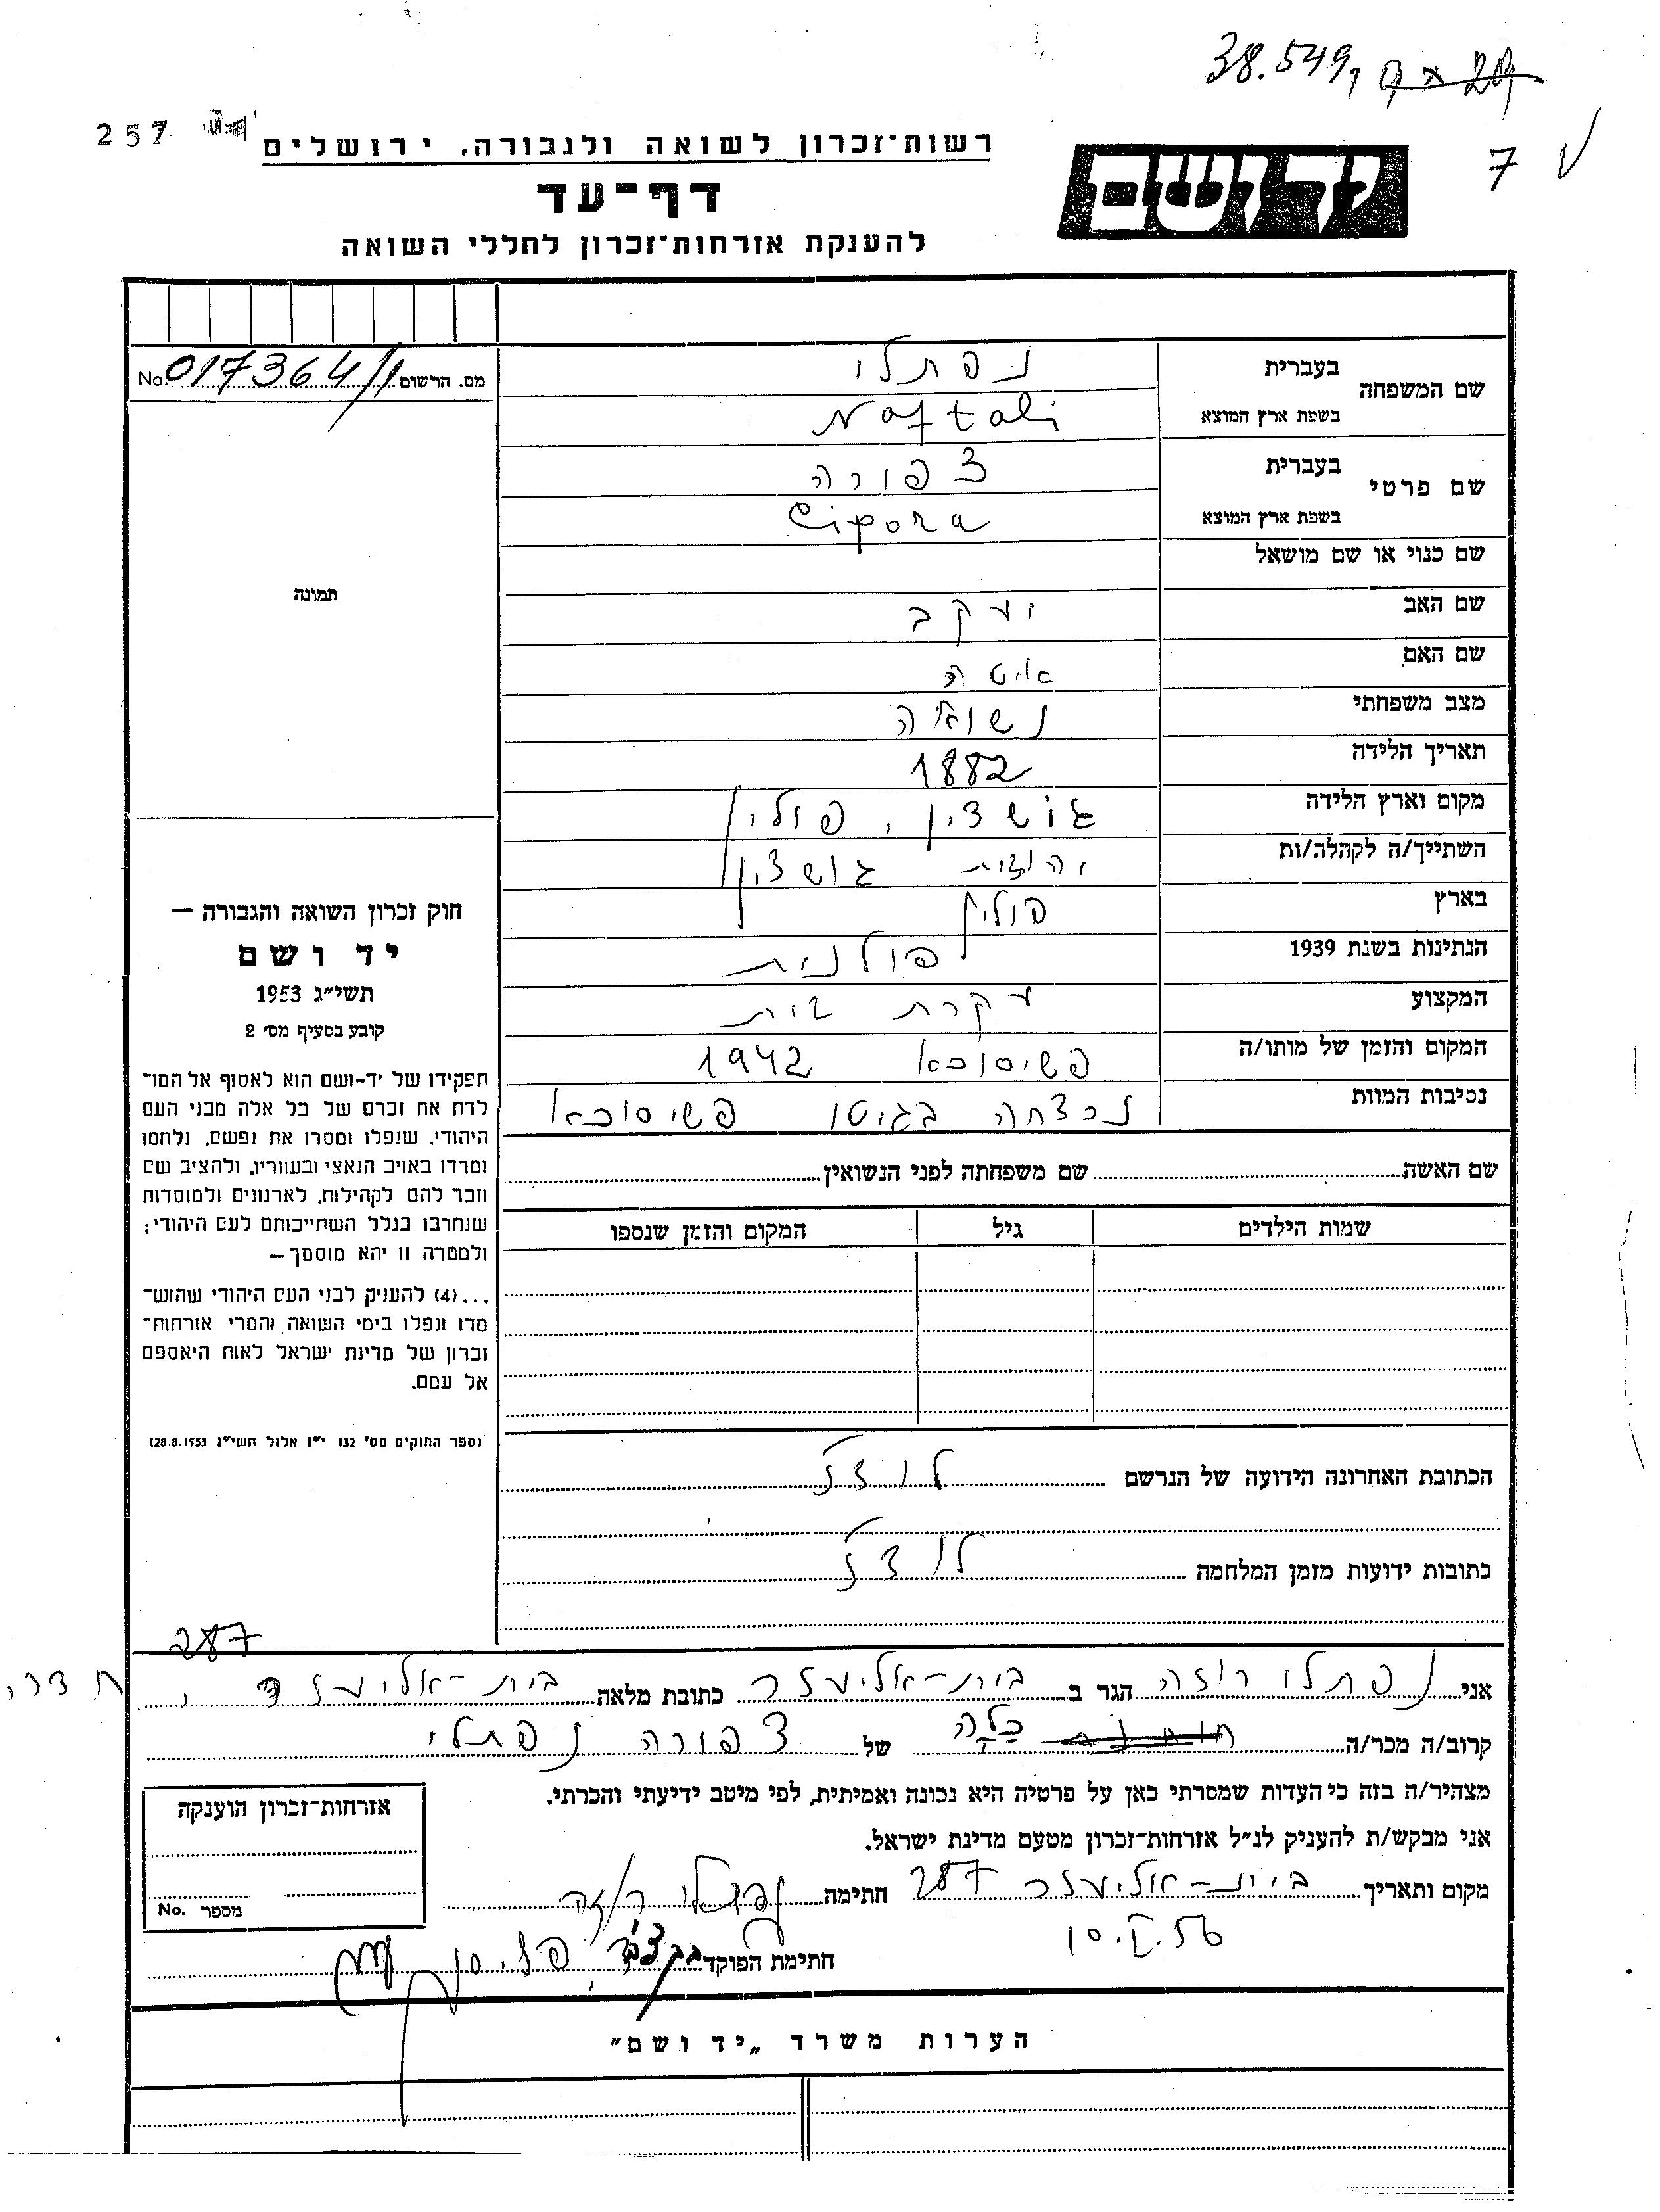 38.549
257
7
רשות־זכרון לשואה ולגבורה. ירושלים
דף־עד
להענקת אזרחות־זכרון לחללי השואה
ידושם
מס. הרשום 017364/1 No.
שם המשפחה
בעברית נפתלי
בשפת ארץ המוצא Naftali
שם פרטי
בעברית צפורה
בשפת ארץ המוצא Cipora
שם כנוי או שם מושאל
שם האב יעקב
שם האם איטה
מצב משפחתי נשואה
תאריך הלידה 1882
מקום וארץ הלידה גושצין, פולין
השתייך/ה לקהלה/ות יהודית גושצין
בארץ פולין
הנתינות בשנת 1939 פולנית
המקצוע עקרת בית
המקום והזמן של מותו/ה פשיסוכא 1942
נסיבות המוות נרצחה בגיטו פשיסוכא
תמונה
חוק זכרון השואה והגבורה —
יד ושם
תשי״ג 1953
קובע בסעיף מס׳ 2
תפקידו של יד-ושם הוא לאסוף אל המו־
לדת את זכרם של כל אלה מבני העם
היהודי, שנפלו ומסרו את נפשם, נלחמו
ומרדו באויב הנאצי ובעוזריו, ולהציב שם
וזכר להם לקהילות, לארגונים ולמוסדות
שנחרבו בגלל השתייכותם לעם היהודי;
ולמטרה זו יהא מוסמך—
...(4) להעניק לבני העם היהודי שהוש־
מדו ונפלו בימי השואה והמרי אזרחות־
זכרון של מדינת ישראל לאות היאספם
אל עמם.
(ספר החוקים מס׳ 132 י״ז אלול תשי״ג 28.8.1953)
שם האשה שם משפחתה לפני הנשואין
שמות הילדים גיל המקום והזמן שנספו
הכתובת האחרונה הידועה של הנרשם לודז
כתובות ידועות מזמן המלחמה לודז
287
אני נפתלי רוזה הגר ב בית-אליעזר כתובת מלאה בית-אליעזר, חדרה
קרוב/ה מכר/ה כלה של צפורה נפתלי
מצהיר/ה בזה כי העדות שמסרתי כאן על פרטיה היא נכונה ואמיתית, לפי מיטב ידיעתי והכרתי.
אני מבקש/ת להעניק לנ״ל אזרחות־זכרון מטעם מדינת ישראל.
מקום ותאריך בית-אליעזר 287 חתימה נפתלי רוזה
חתימת הפוקד
אזרחות־זכרון הוענקה
מספר No.
הערות משרד „יד ושם״